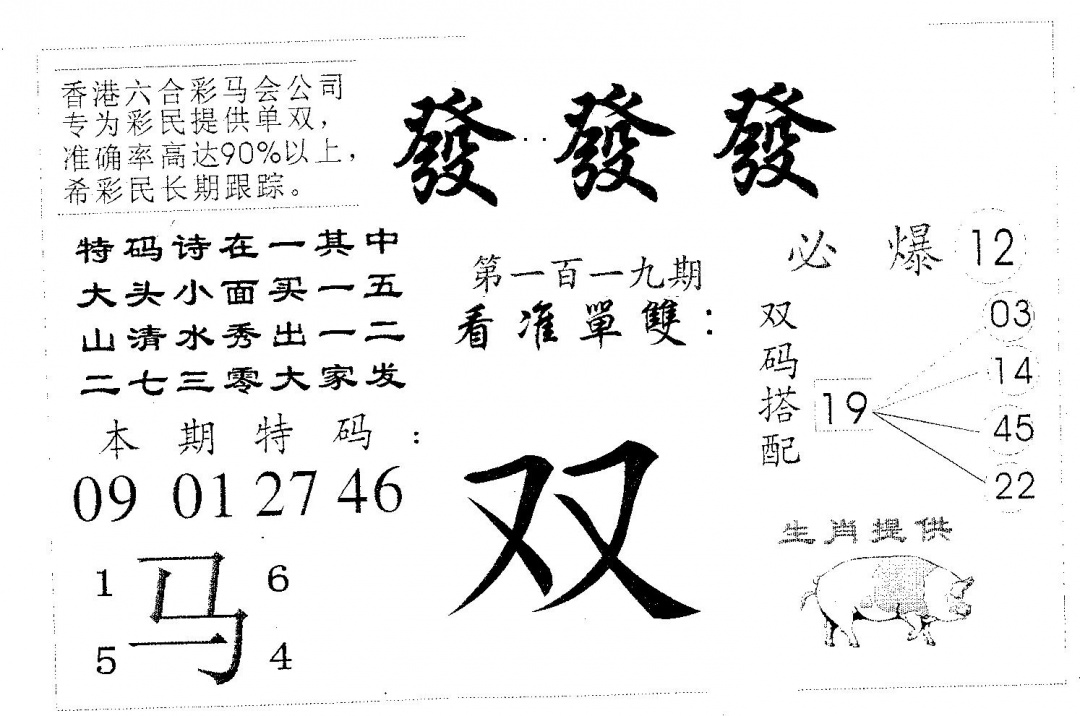 香港六合彩马会公司
专为彩民提供单双，
准确率高达90%以上，
希彩民长期跟踪。
發發發
特码诗在一其中
大头小面买一五
山清水秀出一二
二七三零大家发
第一百一九期
看准單雙：
必爆12
双码搭配
19
03
14
45
22
本期特码：
09 01 27 46
双
生肖提供
1 6
马
5 4